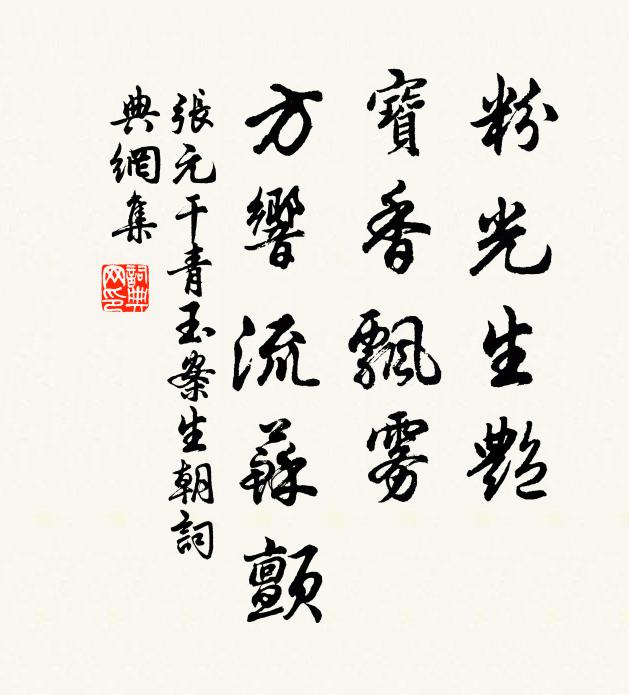 粉光生艷
寶香飄霧
方響流蘇顫
張元干青玉案生朝詞
典網集
詞典網印